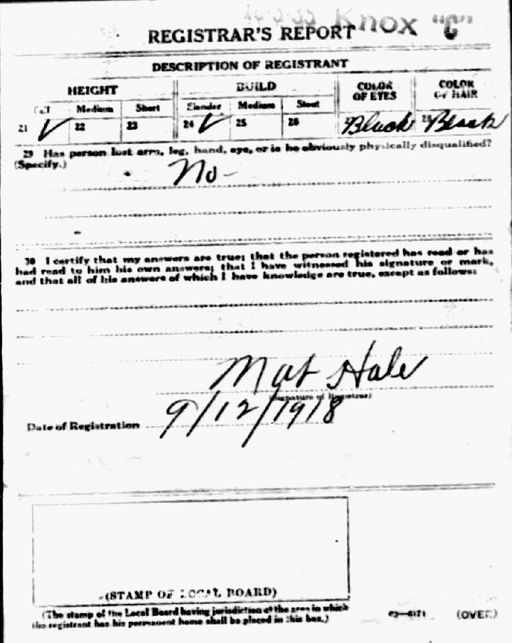 Knox "C"
REGISTRAR'S REPORT
DESCRIPTION OF REGISTRANT
HEIGHT BUILD COLOR OF EYES COLOR OF HAIR
Tall Medium Short Slender Medium Stout
21 ✓ 22 23 24 ✓ 25 26 Black 28 Black
29 Has person lost arm, leg, hand, eye, or is he obviously physically disqualified?
(Specify.) No-
30 I certify that my answers are true; that the person registered has read or has
had read to him his own answers; that I have witnessed his signature or mark,
and that all of his answers of which I have knowledge are true, except as follows:
Mat Hale
(Signature of Registrar)
Date of Registration 9/12/1918
(STAMP OF LOCAL BOARD)
(The stamp of the Local Board having jurisdiction of the area in which
the registrant has his permanent home shall be placed in this box.)
03—6171 (OVER)